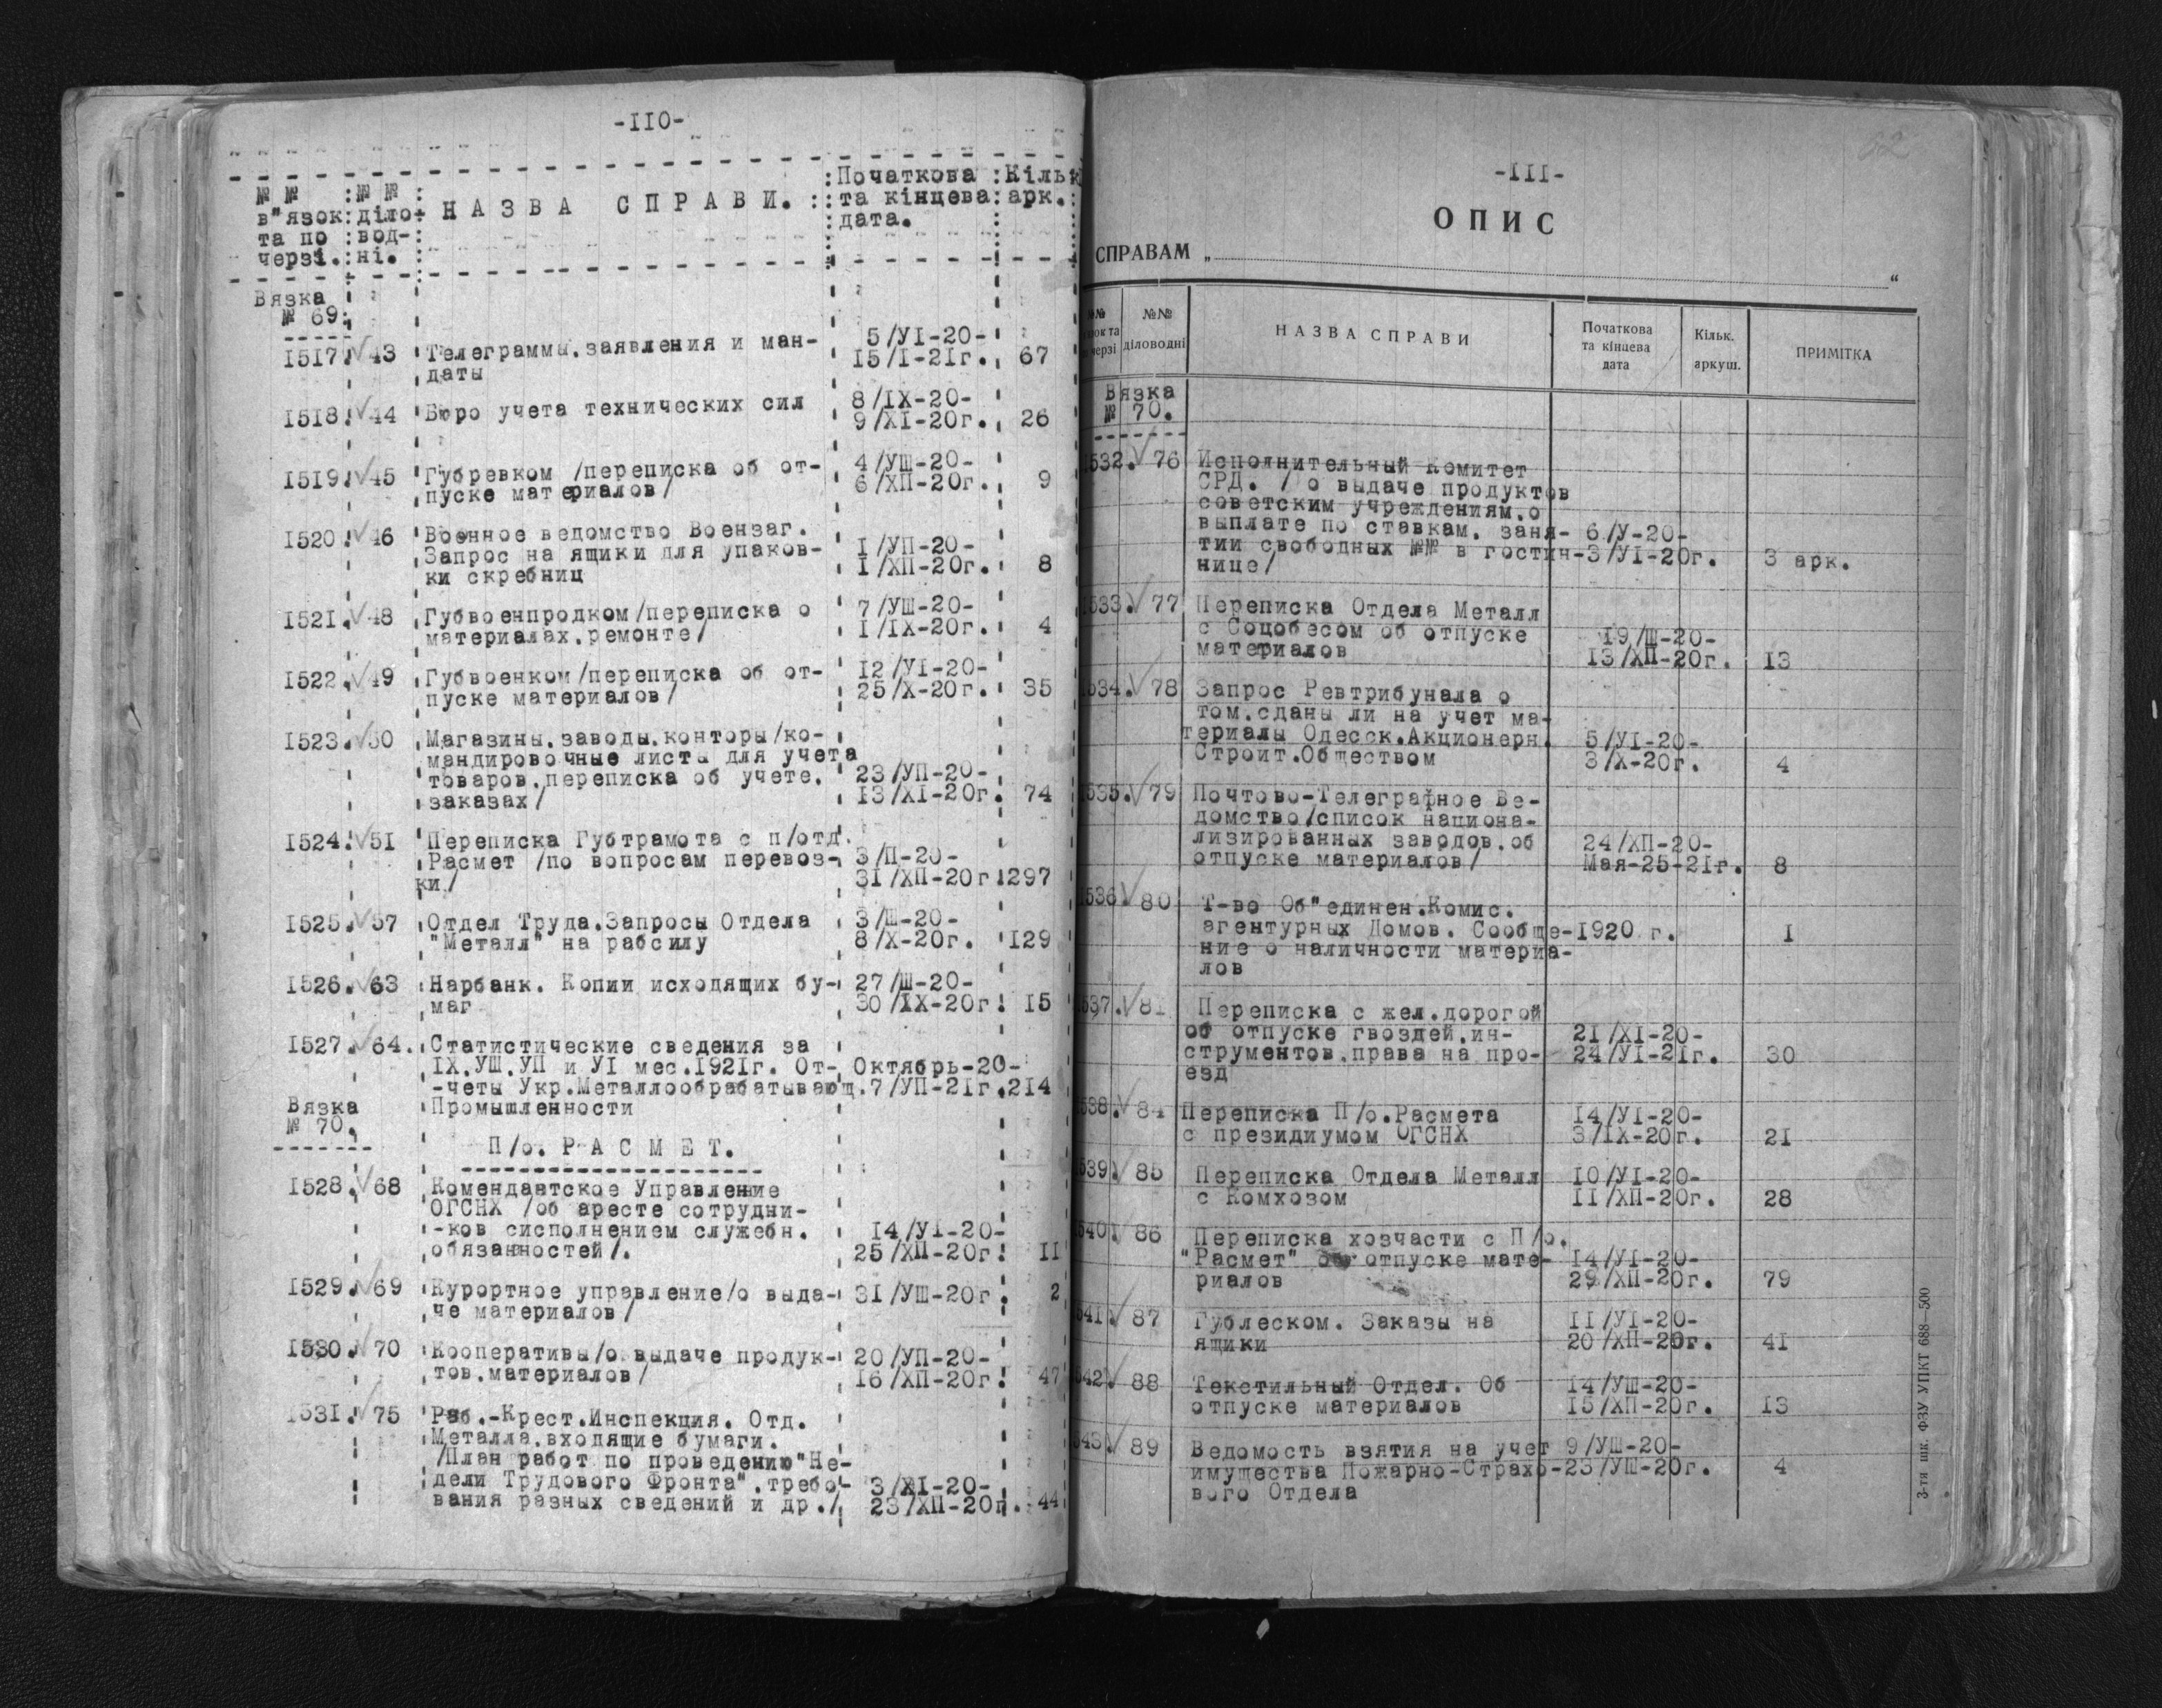 -IIO-
№ № в"язок та по черзі. № № діло-вод-ні. НАЗВА СПРАВИ. Початкова та кінцева дата. Кільк арк.
Вязка
№ 69.
1517. 43 Телеграммы, заявления и ман- 5/УI-20-
даты 15/I-21г. 67
1518. 44 Бюро учета технических сил 8/IX-20-
9/XI-20г. 26
1519. 45 Губревком /переписка об от- 4/УШ-20-
пуске материалов/ 6/ХП-20г. 9
1520. 46 Военное ведомство Воензаг.
Запрос на ящики для упаков- 1/УП-20-
ки скребниц 1/ХП-20г. 8
1521. 48 Губвоенпродком/переписка о 7/УШ-20-
материалах, ремонте/ 1/IX-20г. 4
1522. 49 Губвоенком/переписка об от- 12/УI-20-
пуске материалов/ 25/X-20г. 35
1523. 50 Магазины, заводы, конторы/ко-
мандировочные листы для учета
товаров, переписка об учете, 23/УП-20-
заказах/ 13/XI-20г. 74
1524. 51 Переписка Губтрамота с п/отд.
Расмет /по вопросам перевоз- 3/П-20-
ки/ 31/ХП-20г. 297
1525. 57 Отдел Труда. Запросы Отдела 3/Ш-20-
"Металл" на рабсилу 8/X-20г. 129
1526. 63 Нарбанк. Копии исходящих бу- 27/Ш-20-
маг 30/IX-20г. 15
1527. 64. Статистические сведения за
IX, УШ, УП и УI мес. 1921г. От- Октябрь-20-
-четы Укр. Металлообрабатывающ. 7/УП-21г. 214
Промышленности
Вязка
№ 70.
П/о. РАСМЕТ.
1528. 68 Комендантское Управление
ОГСНХ /об аресте сотрудни-
-ков сисполнением служебн. 14/УI-20-
обязанностей/. 25/ХП-20г. 11
1529. 69 Курортное управление/о выда- 31/УШ-20г. 2
че материалов/
1530. 70 Кооперативы/о выдаче продук- 20/УП-20-
тов, материалов/ 16/ХП-20г. 47
1531. 75 Раб.-Крест. Инспекция. Отд.
Металла, входящие бумаги.
/План работ по проведению "Не-
дели Трудового Фронта", требо- 3/XI-20-
вания разных сведений и др./ 23/ХП-20г. 44
-III-
ОПИС
СПРАВАМ „ “
№№ діловодні НАЗВА СПРАВИ Початкова та кінцева дата Кільк. аркуш. ПРИМІТКА
Вязка
№ 70.
1532. 76 Исполнительный Комитет
СРД. /о выдаче продуктов
советским учреждениям, о
выплате по ставкам, заня- 6/У-20-
тии свободных №№ в гостин- 3/УI-20г. 3 арк.
нице/
1533. 77 Переписка Отдела Металл
с Соцобесом об отпуске 19/Ш-20-
материалов 13/ХП-20г. 13
1534. 78 Запрос Ревтрибунала о
том, сданы ли на учет ма-
териалы Одесск. Акционерн. 5/УI-20-
Строит. Обществом 3/X-20г. 4
1535. 79 Почтово-Телеграфное Ве-
домство/список национа-
лизированных заводов, об 24/ХП-20-
отпуске материалов/ Мая-25-21г. 8
1536 80 Т-во Об"единен. Комис.
агентурных Домов. Сообще- 1920 г. 1
ние о наличности материа-
лов
1537. 81 Переписка с жел. дорогой
об отпуске гвоздей, ин- 21/XI-20-
струментов, права на про- 24/УI-21г. 30
езд
1538. 84 Переписка П/о. Расмета 14/УI-20-
с президиумом ОГСНХ 3/IX-20г. 21
1539. 85 Переписка Отдела Металл 10/УI-20-
с Комхозом 11/ХП-20г. 28
1540. 86 Переписка хозчасти с П/о.
"Расмет" об отпуске мате- 14/УI-20-
риалов 29/ХП-20г. 79
1541. 87 Гублеском. Заказы на 11/УI-20-
ящики 20/ХП-20г. 41
1542. 88 Текстильный Отдел. Об 14/УШ-20-
отпуске материалов 15/ХП-20г. 13
1543. 89 Ведомость взятия на учет 9/УШ-20-
имущества Пожарно-Страхо- 23/УШ-20г. 4
вого Отдела
3-тя шк. ФЗУ УПКТ 688—500